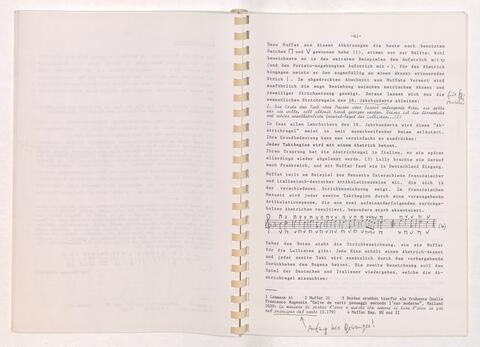 -41-
Dass Muffat aus diesen Abkürzungen die heute noch benutzten
Zeichen ⊓ und V gewonnen habe (1), stimmt nur zur Hälfte: Wohl
bezeichnete er in den weiteren Beispielen den Aufstrich mit V
(und den Portato-angehängten Aufstrich mit ), für den Abstrich
hingegen setzte er den augenfällig an einen Akzent erinnernden
Strich |. Im abgedruckten Abschnitt aus Muffats Vorwort wird
ausführlich die enge Beziehung zwischen metrischem Akzent und
jeweiliger Strichsetzung gezeigt. Daraus lassen sich nun die
wesentlichen Strichregeln des 18. Jahrhunderts ableiten:
In fast allen Lehrbüchern des 18. Jahrhunderts wird diese "Ab-
strichregel" meist in weit ausschweifender Weise erläutert.
Ihre Grundbedeutung kann man vereinfacht so zusammenfassen:
Jeder Taktbeginn wird mit einem Abstrich betont.
Ihren Ursprung hat die Abstrichregel in Italien, wo sie später
allerdings wieder abgelehnt wurde. (3) Lully brachte sie darauf
nach Frankreich, und mit Muffat fand sie in Deutschland Eingang.
Muffat teilt am Beispiel des Menuetts Unterschiede französischer
und italienisch-deutscher Artikulationsweise mit, die sich in
der verschiedenen Strichbezeichnung zeigt. Im französischen
Menuett wird jeder zweite Taktbeginn durch eine vorangehende
Artikulationspause, die aus zwei aufeinanderfolgenden zurückge-
holten Abstrichen resultiert, besonders stark akzentuiert.
(4)
Ueber den Noten steht die Strichbezeichnung, wie sie Muffat
für die Lullisten gibt: Jede Eins erhält einen Abstrichakzent
und jeder zweite Takt wird zusätzlich durch das vorhergehende
Zurückheben des Bogens betont. Die zweite Bezeichnung soll das
Spiel der Deutschen und Italiener wiedergeben, welche die Ab-
strichregel missachten:
1 Lohmann 41 2 Muffat II 3 Boyden erwähnt hierfür als früheste Quelle
Francesco Rognonis "Selva de varii passaggi secondo l'uso moderno", Mailand
4 Muffat Bsp. PP und II
Anfang des Gesanges!